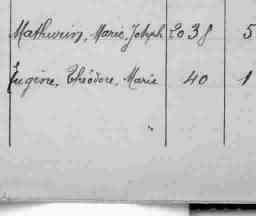 Mathurin, Marie, Joseph 2038 5
Eugène, Théodore, Marie 40 1